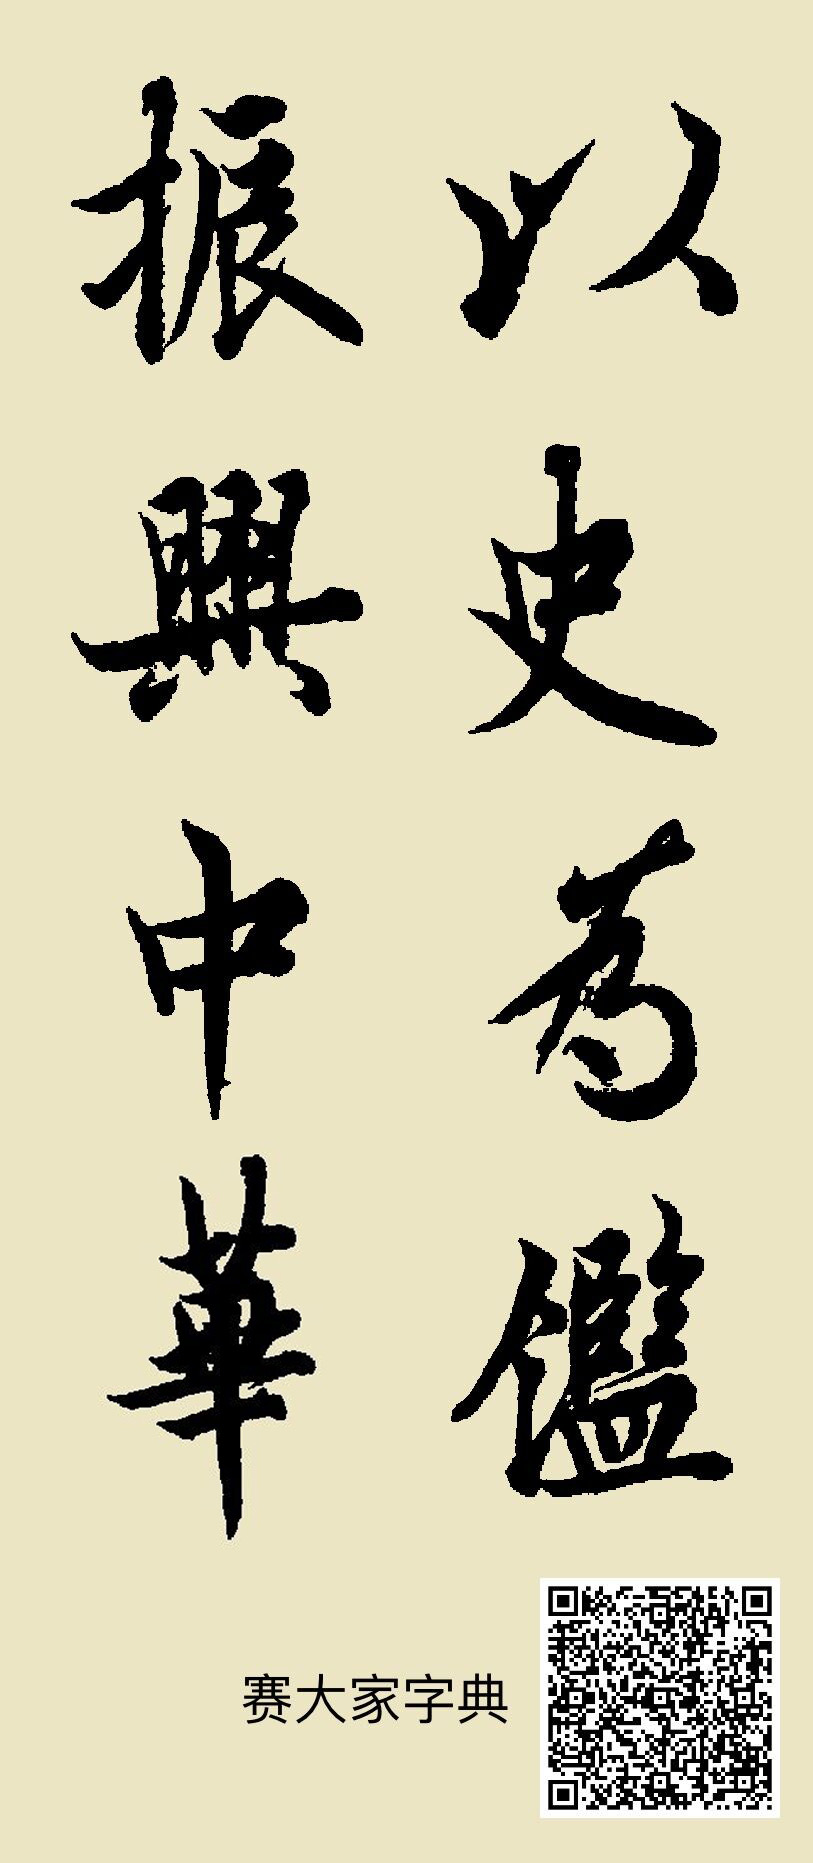 以史為鑑
振興中華
赛大家字典